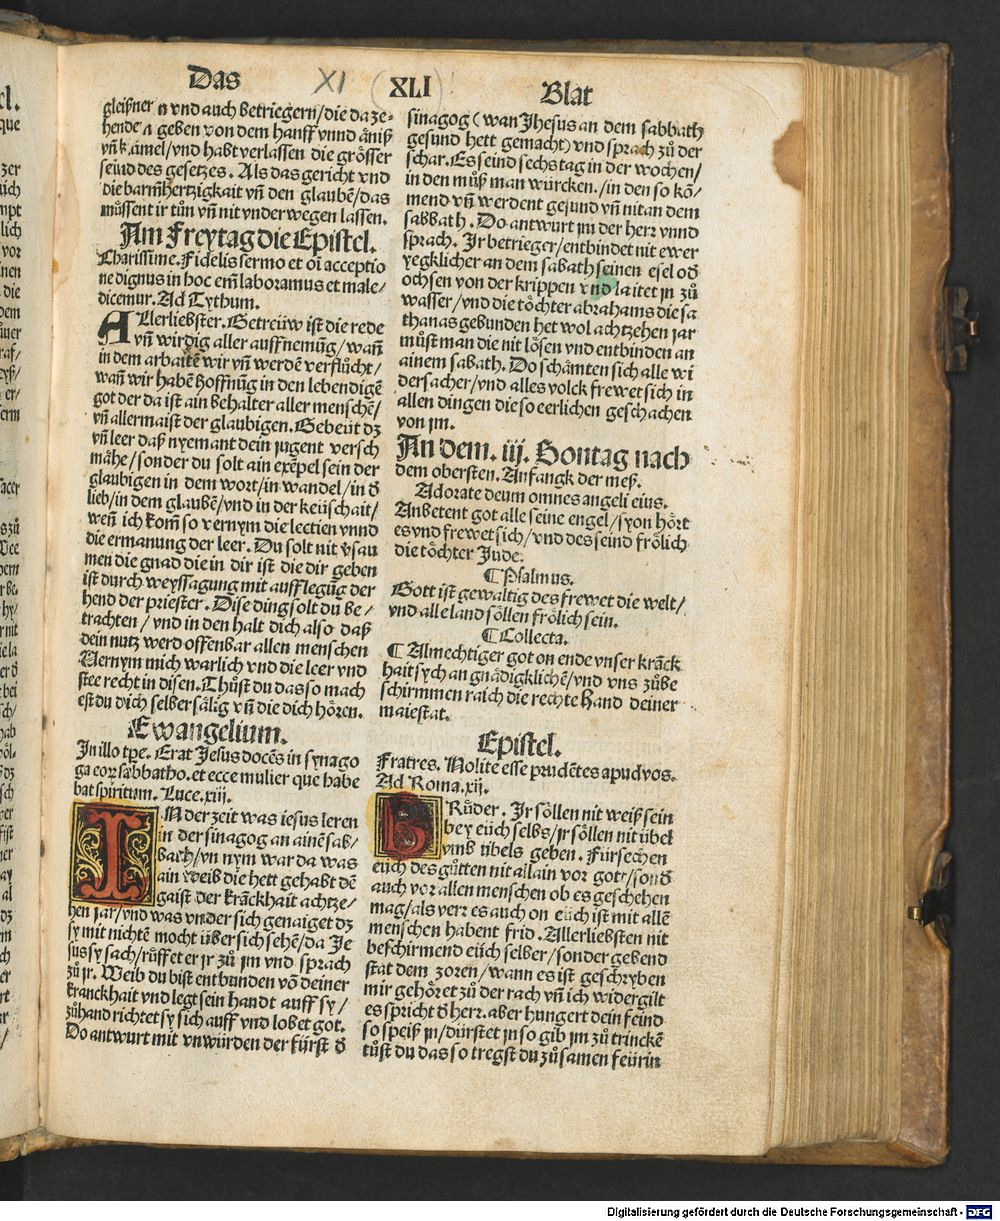 Das XI (XLI) Blat
gleißner n vnd auch betriegern/die da ze⸗
hende n geben von dem hanff vnnd äniß
vñ kümel/vnd habt verlassen die grösser
seind des gesetzes. Als das gericht vnd
die barmhertzigkait vñ den glaubē/das
müssent ir tůn vñ nit vnderwegen lassen.
Am Freytag die Epistel.
Charissime. Fidelis sermo et oī acceptio
ne dignus in hoc em̄ laboramus et male⸗
dicemur. Ad Tythum.
ALlerliebster. Getreüw ist die rede
vñ wirdig aller auffnemūg/wañ
in dem arbaitē wir vñ werdē verflůcht/
wañ wir habē hoffnūg in den lebendigē
got der da ist ain behalter aller menschē/
vñ allermaist der glaubigen. Gebeüt dz
vñ leer daß nyemant dein jugent versch
mähe/sonder du solt ain exēpel sein der
glaubigen in dem wort/in wandel/in d̄
lieb/in dem glaubē/vnd in der keüschait/
weñ ich kom̄ so vernym die lectien vnnd
die ermanung der leer. Du solt nit v̄sau
men die gnad die in dir ist die dir geben
ist durch weyssagung mit aufflegūg der
hend der priester. Dise ding solt du be⸗
trachten/vnd in den halt dich also daß
dein nutz werd offenbar allen menschen
Vernym mich warlich vnd die leer vnd
stee recht in disen. Thůst du das so mach
est du dich selber sälig vñ die dich hören.
Ewangelium.
In illo tp̄e. Erat Jesus docēs in synago
ga eoꝝ sabbatho. et ecce mulier que habe
bat spiritum. Luce. xiii.
IN der zeit was iesus leren
in der sinagog an ainē sab⸗
bath/vn nym war da was
ain weib die hett gehabt dē
gaist der krāckhait achtze⸗
hen jar/vnd was vnder sich genaiget dz
sy mit nichtē mocht über sich sehē/da Je
sus sy sach/růffet er jr zů jm vnd sprach
zů jr. Weib du bist entbunden vō deiner
kranckhait vnd legt sein handt auff sy/
zůhand richtet sy sich auff vnd lobet got.
Do antwurt mit vnwürden der fürst d̄
sinagog (wan Jhesus an dem sabbath
gesund hett gemacht) vnd sprach zů der
schar. Es seind sechs tag in der wochen/
in den můß man würcken./in den so kō⸗
mend vñ werdent gesund vñ nit an dem
sabbath. Do antwurt jm der herr vnnd
sprach. Ir betrieger/entbindet nit ewer
yegklicher an dem sabath seinen esel od̄
ochsen von der krippen vnd laitet jn zů
wasser/vnd die töchter abrahams die sa
thanas gebunden het wol achtzehen jar
můst man die nit lösen vnd entbinden an
ainem sabath. Do schämten sich alle wi
dersacher/vnd alles volck frewet sich in
allen dingen die so eerlichen geschachen
von jm.
An dem. iij. Sontag nach
dem obersten. Anfangk der meß.
Adorate deum omnes angeli eius.
Anbetent got alle seine engel/syon hört
es vnd frewet sich/vnd des seind frölich
die töchter Jude.
¶ Psalmus.
Gott ist gewaltig des frewet die welt/
vnd alle land söllen frölich sein.
¶ Collecta.
¶ Almechtiger got on ende vnser krāck
hait sych an gnädigklichē/vnd vns zůbe
schirmmen raich die rechte hand deiner
maiestat.
Epistel.
Fratres. Nolite esse prudētes apud vos.
Ad Roma. xij.
BRůder. Ir söllen nit weiß sein
bey eüch selbs/jr söllen nit übel
vmb übels geben. Fürsechen
eüch des gůtten nit allain vor gott/sond̄
auch vor allen menschen ob es geschehen
mag/als verr es auch on eüch ist mit allē
menschen habent frid. Allerliebsten nit
beschirmend eüch selber/sonder gebend
stat dem zoren/wann es ist geschryben
mir gehöret zů der rach vñ ich widergilt
es spricht d̄ herr. aber hungert dein feind
so speiß jn/dürstet jn so gib jm zů trinckē
tůst du das so tregst du zůsamen feürin
Digitalisierung gefördert durch die Deutsche Forschungsgemeinschaft - DFG